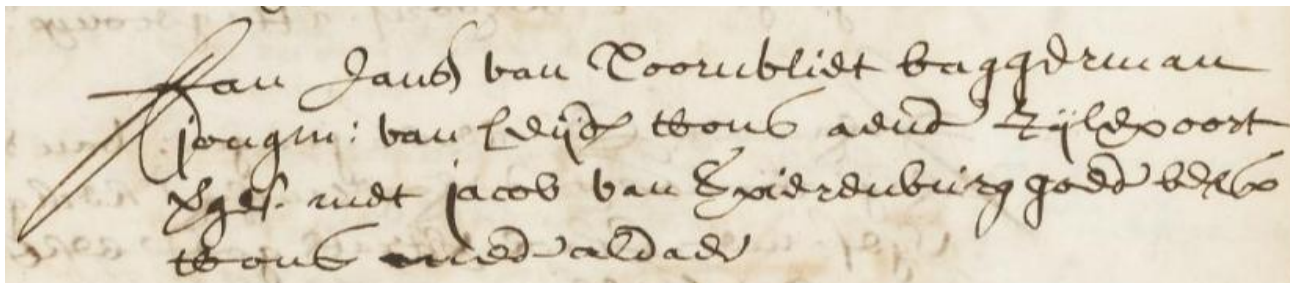 Jan Jans van Coornvliet baggerman
jongm: van Leyde wons aende Zylpoort
verges. met jacob van Spierenburg goede bek
wons mede aldaer